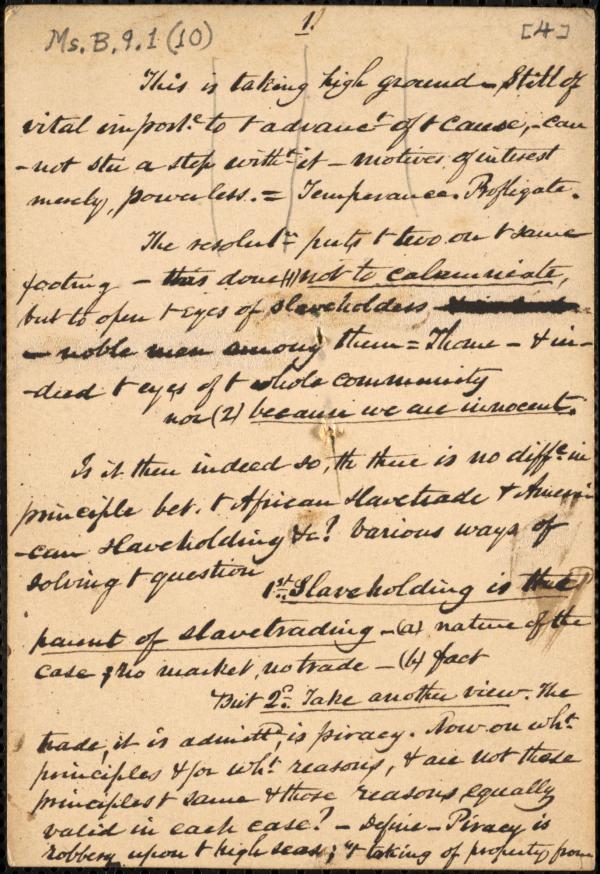 Ms. B. 9. 1 (10)
1.
[4]
This is taking high ground - Still of
vital importc. to t advanct. of t cause, - can
-not stir a step witht. it - motives of interest
merely, powerless. = Temperance. Profligate.
The resolutn. puts t two on t same
footing - this done (1) not to calumniate,
but to open t eyes of slaveholders
- noble men among them = Thome - & in-
-deed t eyes of t whole community
nor (2) because we are innocent.
Is it then indeed so, th there is no diffce. in
principle bet. t African slavetrade & Ameri-
-can slaveholding &c? Various ways of
solving t question
1st. Slaveholding is the
parent of slavetrading - (a) nature of the
case; no market, no trade - (b) fact
But 2d. Take another view. The
trade, it is admittd, is piracy. Now on wht.
principles & for wht. reasons, & are not those
principles t same & those reasons equally
valid in each case? - Define - Piracy is
robbery upon t high seas; "t taking of property from